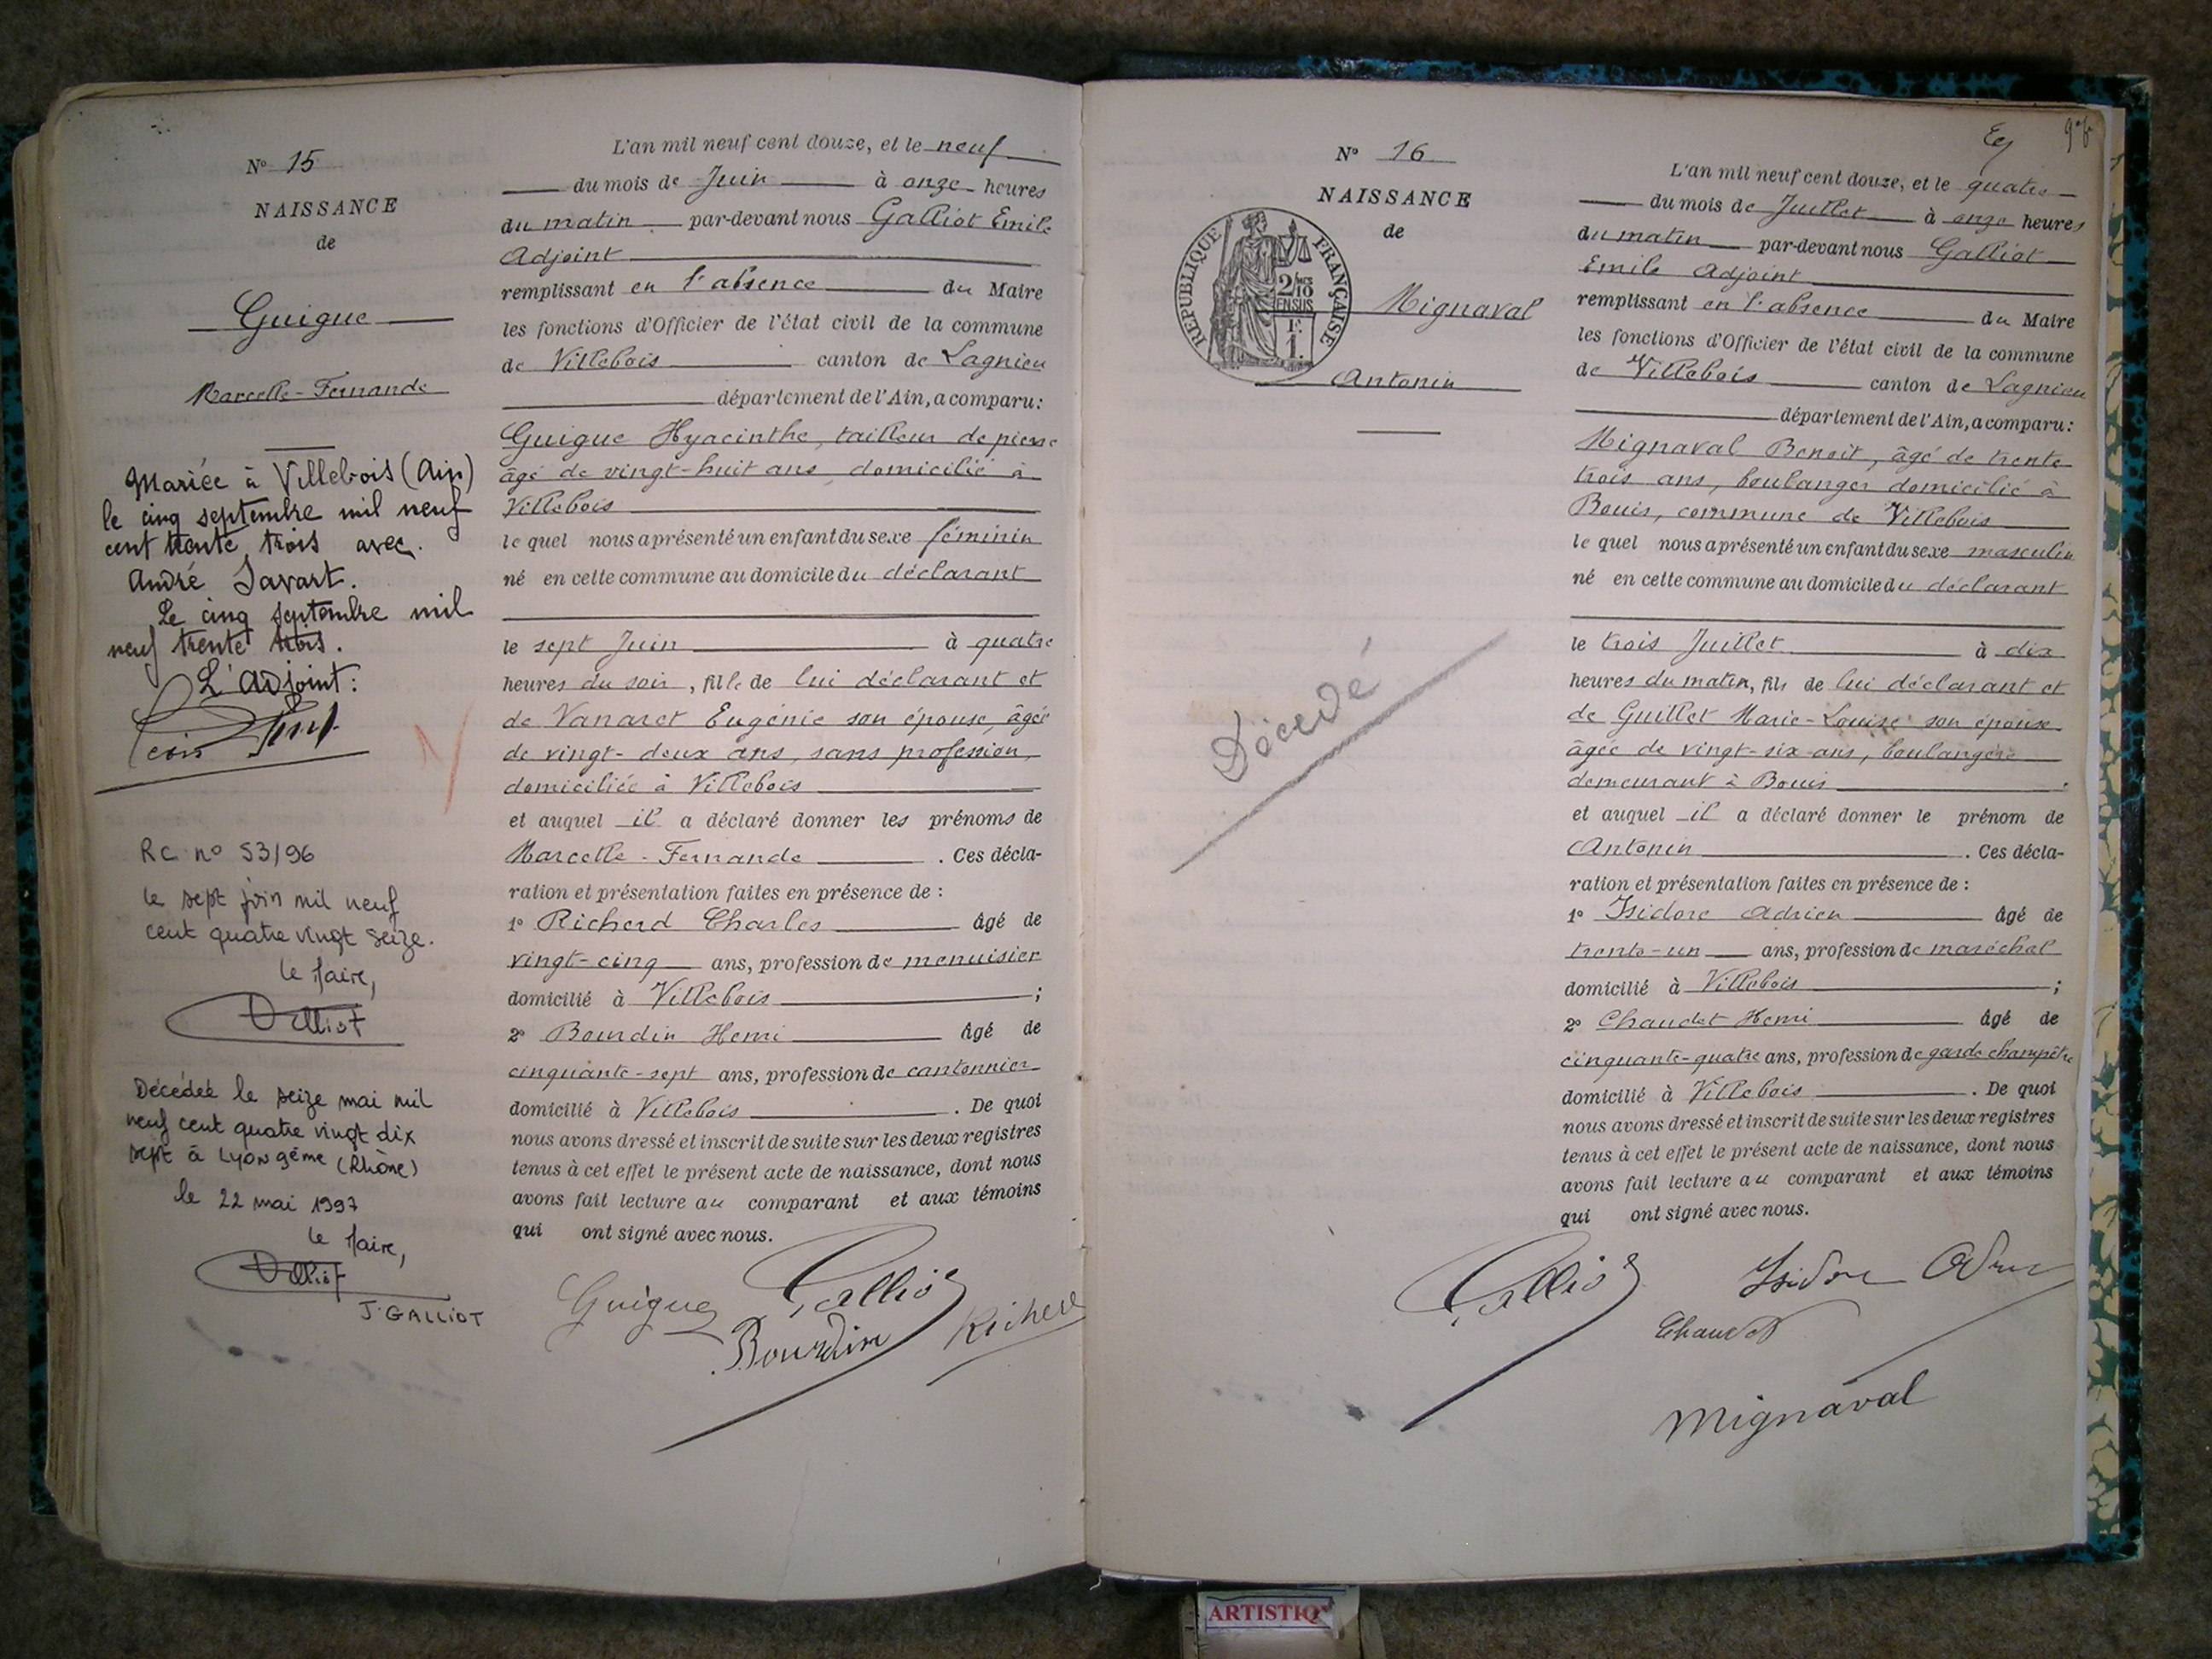 N° 15
NAISSANCE
de
Guigue
Marcelle-Fernande
Mariée à Villebois (Ain)
le cinq septembre mil neuf
cent trente trois avec.
André Savart.
Le cinq septembre mil
neuf trente trois.
L'Adjoint:
RC n° 53/96
le sept juin mil neuf
cent quatre vingt seize.
le Maire,
Décédée le seize mai mil
neuf cent quatre vingt dix
sept à Lyon 9ème (Rhône)
le 22 mai 1997
le Maire,
J. GALLIOT
L'an mil neuf cent douze, et le neuf
du mois de Juin à onze heures
du matin par-devant nous Galliot Emile
Adjoint
remplissant en l'absence du Maire
les fonctions d'Officier de l'état civil de la commune
de Villebois canton de Lagnieu
département de l'Ain, a comparu:
Guigue Hyacinthe, tailleur de pierre
âgé de vingt-huit ans, domicilié à
Villebois
le quel nous a présenté un enfant du sexe féminin
né en cette commune au domicile du déclarant
le sept Juin à quatre
heures du soir, fille de lui déclarant et
de Vanaret Eugénie son épouse, âgée
de vingt-deux ans, sans profession,
domiciliée à Villebois
et auquel il a déclaré donner les prénoms de
Marcelle-Fernande. Ces décla-
ration et présentation faites en présence de :
1° Richerd Charles âgé de
vingt-cinq ans, profession de menuisier
domicilié à Villebois ;
2° Bourdin Henri âgé de
cinquante-sept ans, profession de cantonnier
domicilié à Villebois. De quoi
nous avons dressé et inscrit de suite sur les deux registres
tenus à cet effet le présent acte de naissance, dont nous
avons fait lecture au comparant et aux témoins
qui ont signé avec nous.
Guigue Galliot
Bourdin Richerd
N° 16
NAISSANCE
de
REPUBLIQUE FRANÇAISE
2/10
EN SUS
Mignaval
Antonin
Décédé
L'an mil neuf cent douze, et le quatre
du mois de Juillet à onze heures
du matin par-devant nous Galliot
Emile Adjoint
remplissant en l'absence du Maire
les fonctions d'Officier de l'état civil de la commune
de Villebois canton de Lagnieu
département de l'Ain, a comparu:
Mignaval Benoit, âgé de trente
trois ans, boulanger domicilié à
Bouis, commune de Villebois
le quel nous a présenté un enfant du sexe masculin
né en cette commune au domicile du déclarant
le trois Juillet à dix
heures du matin, fils de lui déclarant et
de Guillet Marie-Louise son épouse
âgée de vingt-six ans, boulangère
demeurant à Bouis.
et auquel il a déclaré donner le prénom de
Antonin. Ces décla-
ration et présentation faites en présence de :
1° Isidore Adrien âgé de
trente-un ans, profession de maréchal
domicilié à Villebois ;
2° Chaudet Henri âgé de
cinquante-quatre ans, profession de garde champêtre
domicilié à Villebois. De quoi
nous avons dressé et inscrit de suite sur les deux registres
tenus à cet effet le présent acte de naissance, dont nous
avons fait lecture au comparant et aux témoins
qui ont signé avec nous.
Galliot Isidore Adrien
Chaudet
Mignaval
ARTISTIQ